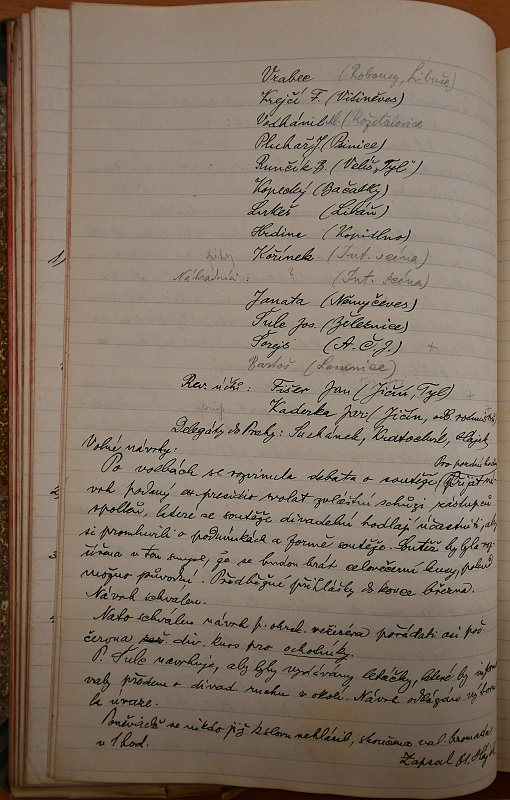 Vrabec (Robousy, Libuše)
Krejčí F. (Višiněves)
Vodhánil M. (Rožďalovice
Pluhař J. (Psinice)
Runčík B. (Veliš, "Tyl")
Kopecký (Bačalky)
Lukeš (Libáň)
Hrdina (Kopidlno)
Kořínek (Int. scéna)
Náhradníci: ? (Int. scéna)
Janata (Němyčeves)
Šulc Jos. (Železnice)
Šorejs (A.Č.J.) +
Bartoš (Lomnice)
Rev. účtů: Fišer Jan (Jičín, Tyl)
Kaderka Jar. (Jičín,
Delegáty do Prahy: Suchánek, Kratochvíl,
Volné návrhy:
Po volbách se rozvinula debata o soutěže (Přijat ná-
vrh podaný presidio svolat zvláštní schůzi zástupců
spolků, které se soutěže divadelní hodlají účastniti, aby
si promluvili o podmínkách a formě soutěže. Soutěž by byla
v ten smysl, že se budou brát celovečerní kusy, pokud
možno původní. Předběžné přihlášky do konce března.
Návrh schválen.
Nato schválen návrh p. okrsk. režiséra pořádati asi
června div. kurs pro ochotníky.
P. Šulc navrhuje, aby byly vydávány letáčky, které by
valy předem o divad. ruchu v okolí. Návrh odkázán
k úvaze.
Poněvadž se nikdo již k slovu nehlásil, skončena val. hromada
v 1 hod.
Zapsal